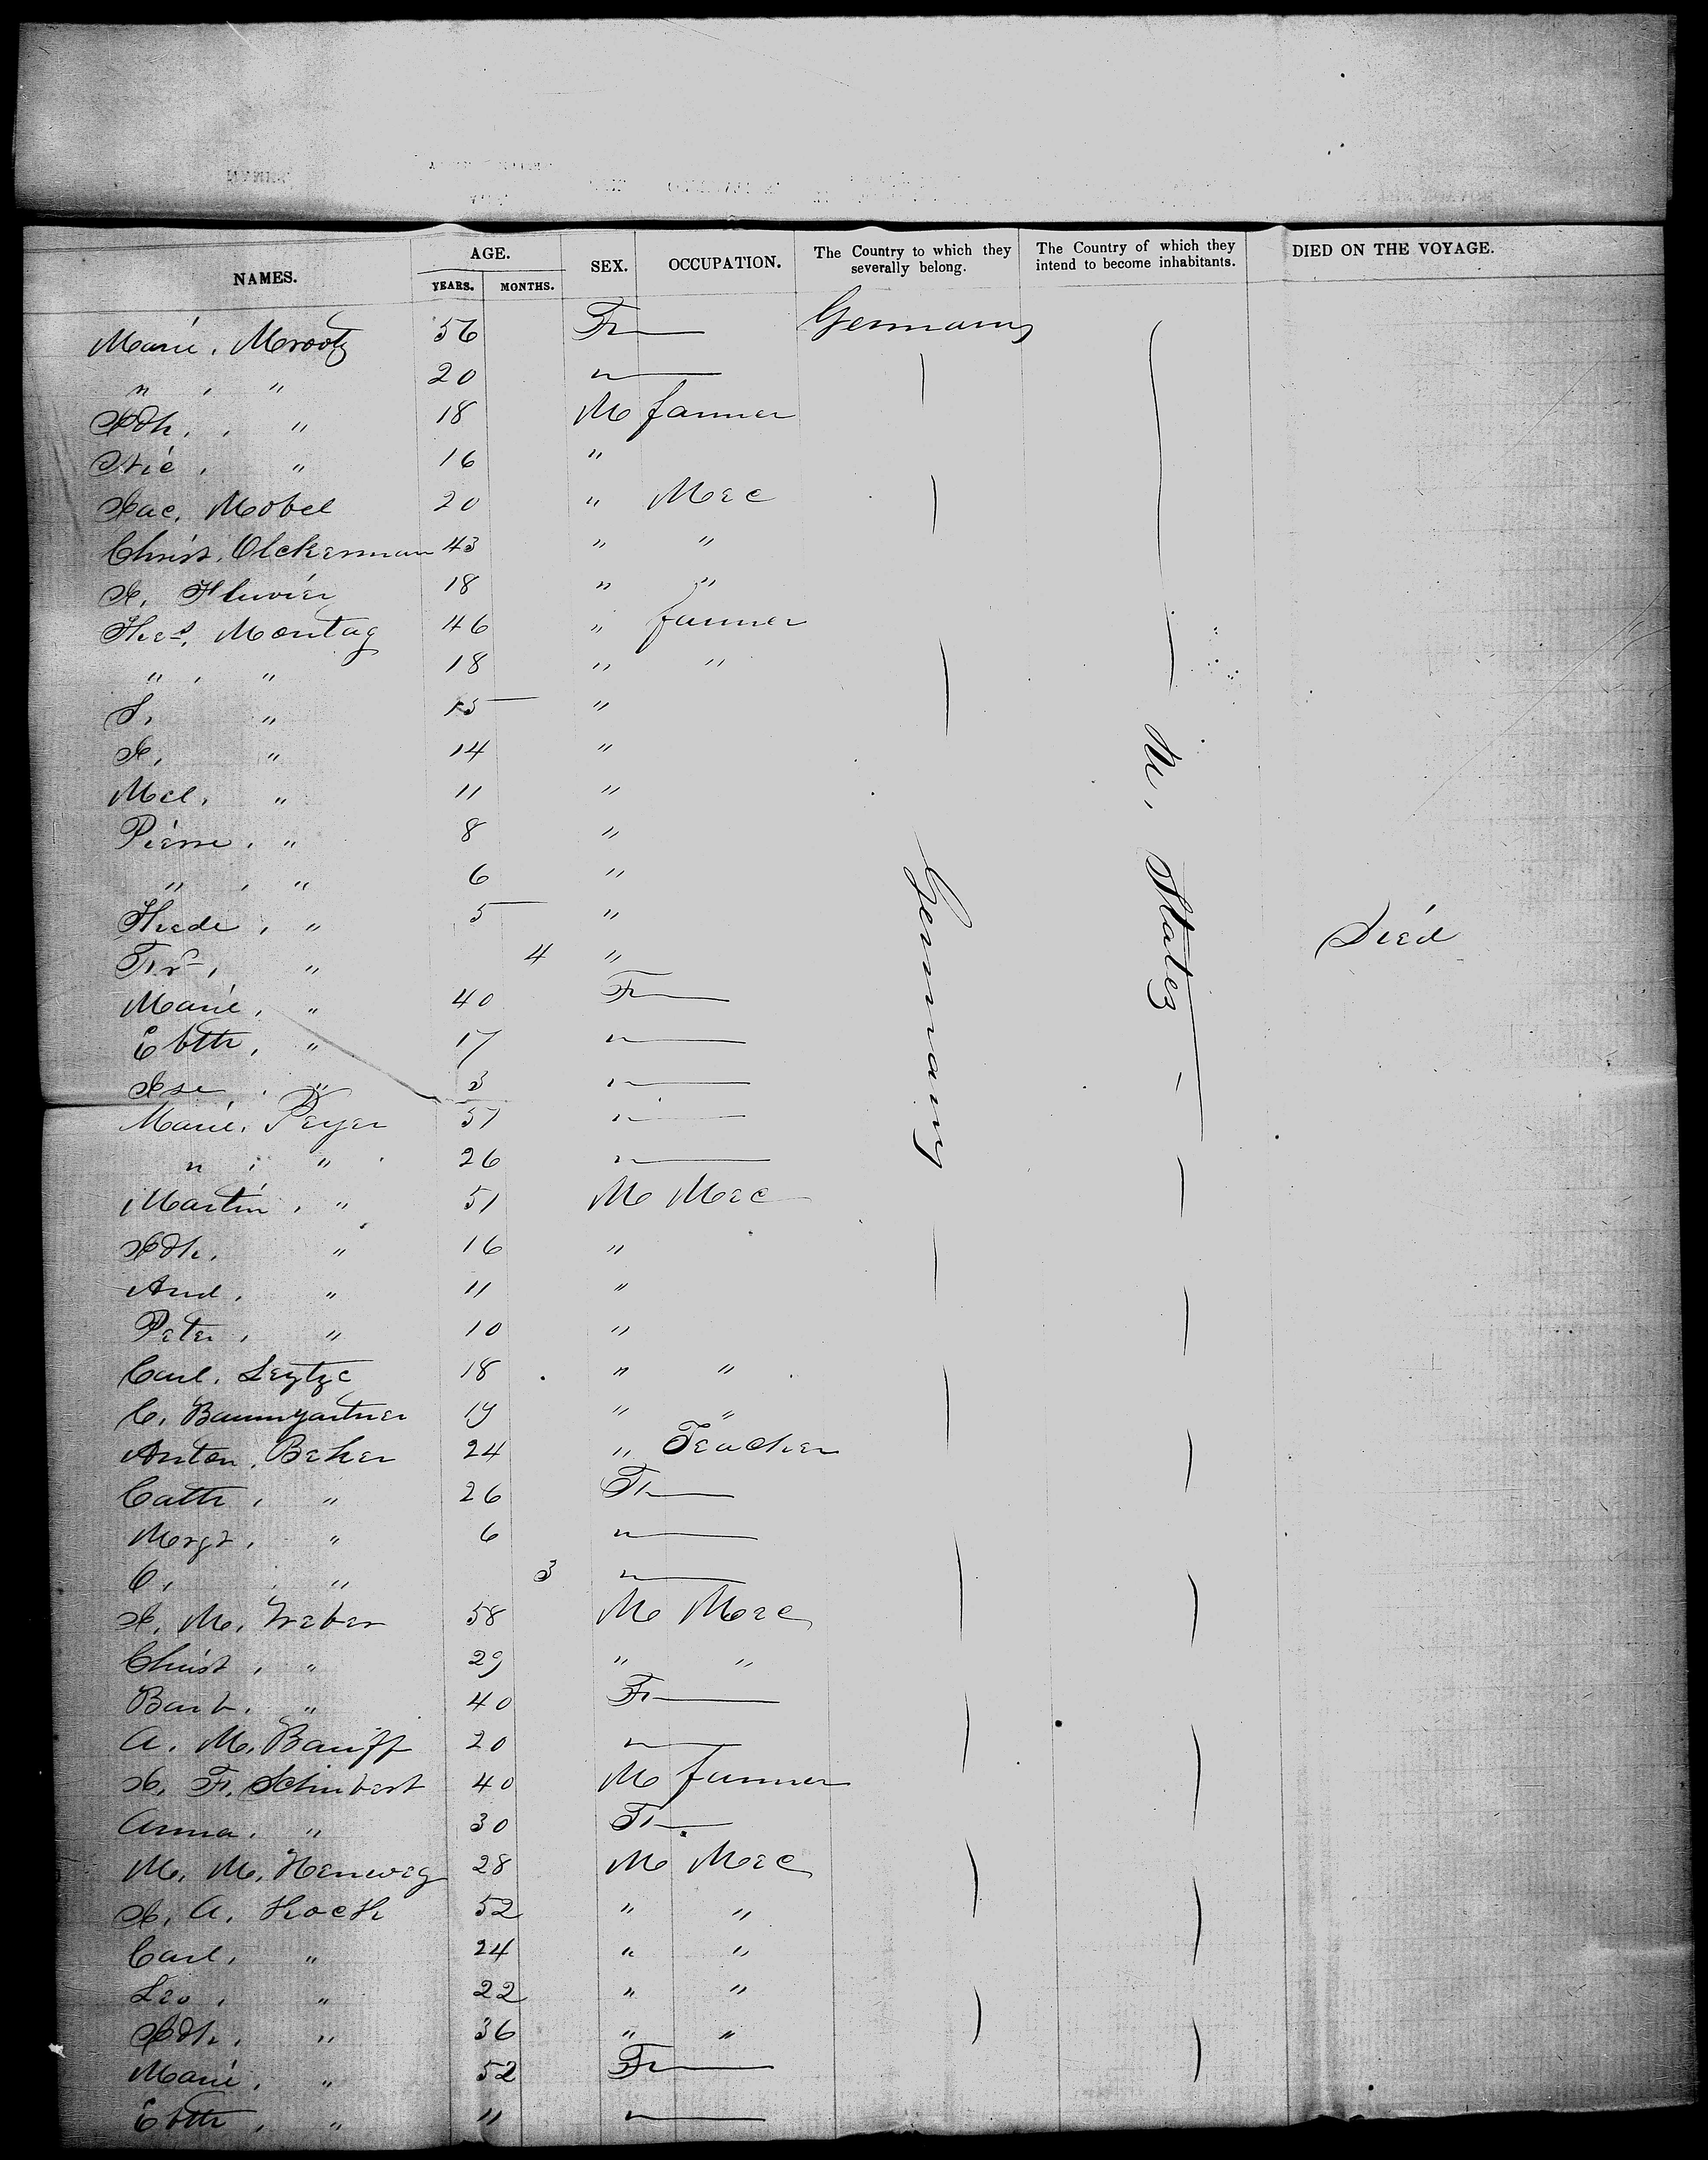 NAMES. AGE. YEARS. MONTHS. SEX. OCCUPATION. The Country to which they severally belong. The Country of which they intend to become inhabitants. DIED ON THE VOYAGE.
Marie, Mrootz 56 Fr — Germany
" , " 20 "
Jdh, , " 18 M farmer
Nic , " 16 "
Jac, Mobel 20 " Mec
Christ, Olckerman 43 " "
J, Fluvier 18 " "
Montag 46 " farmer
" , " 18 " "
" 15 "
J, " 14 "
Mel, " 11 "
Pierre , " 8 "
" , " 6 "
" 5 "
Frs, " 4 " Died
Marie, " 40 Fr —
Ebth, " 17 "
" 3 "
Marie, Peyer 51 "
" , " 26 "
Martin , " 51 M Mec
Jdh, " 16 "
And, " 11 "
Peter, " 10 "
Carl, Leytze 18 " "
C, Baumgartner 19 " "
Anton, Beker 24 " Teacher
Cath , " 26 Fr —
Mrgt, " 6 "
C, " 3 "
J, M, Weber 58 M Mec
Christ , " 29 " "
Barb, " 40 Fr —
A, M, Banff 20 "
J, Fr, Schubert 40 M farmer
Anna, " 30 Fr —
M, M, Henweg 28 M Mec
J, A, Koch 52 " "
Carl, " 24 " "
Leo , " 22 " "
Jdh, " 36 " "
Marie, " 52 Fr —
Ebth , " 11 "
Germany
U, States